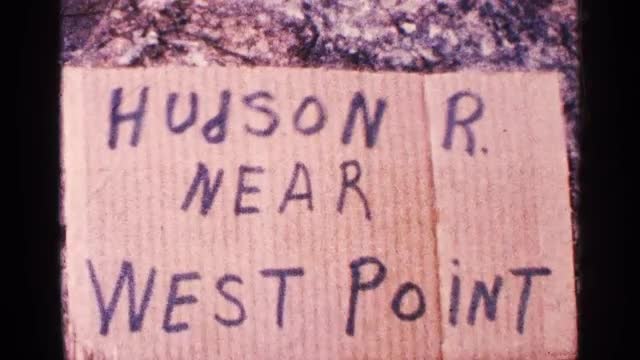 HUdSON R.
NEAR
WEST PoiNT